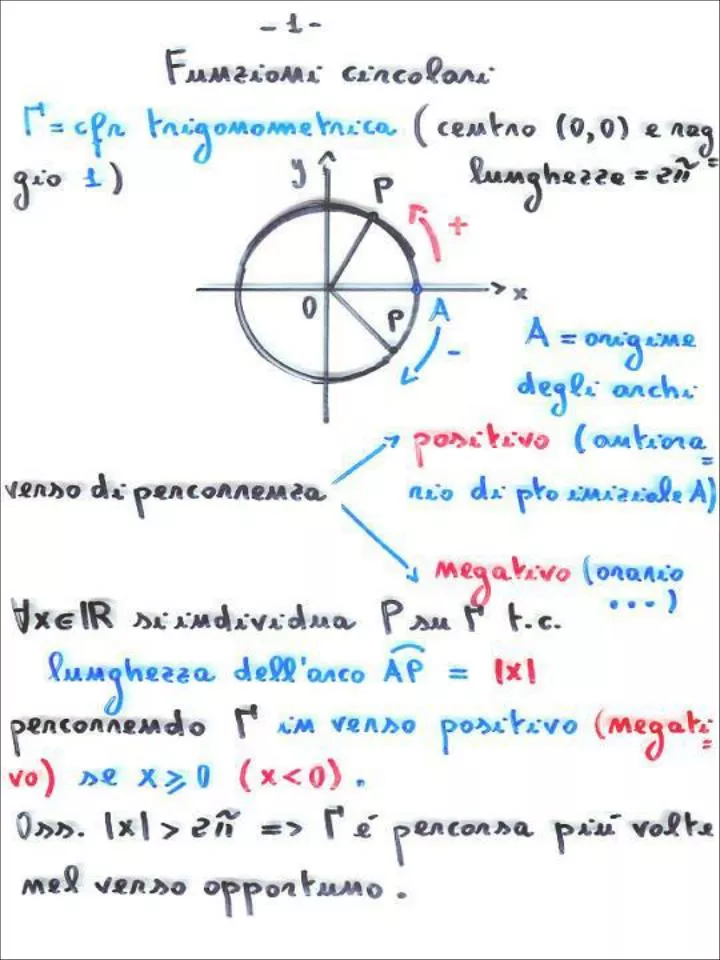 - 1 -
Funzioni circolari
Γ = cfr trigonometrica ( centro (0,0) e rag
gio 1 ) lunghezza = 2π =
y
P
+
x
O
A
P
-
A = origine
degli archi
positivo ( antiora =
verso di percorrenza
rio di pto iniziale A)
negativo (orario
... )
∀x∈ℝ si individua P su Γ t.c.
lunghezza dell'arco A͡P = |x|
percorrendo Γ in verso positivo (negati =
vo) se x ⩾ 0 ( x < 0 ) .
Oss. |x| > 2π => Γ é percorsa piú volte
nel verso opportuno .